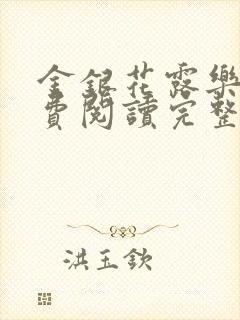 金銀花露樂
費閱讀完整
洪玉欽